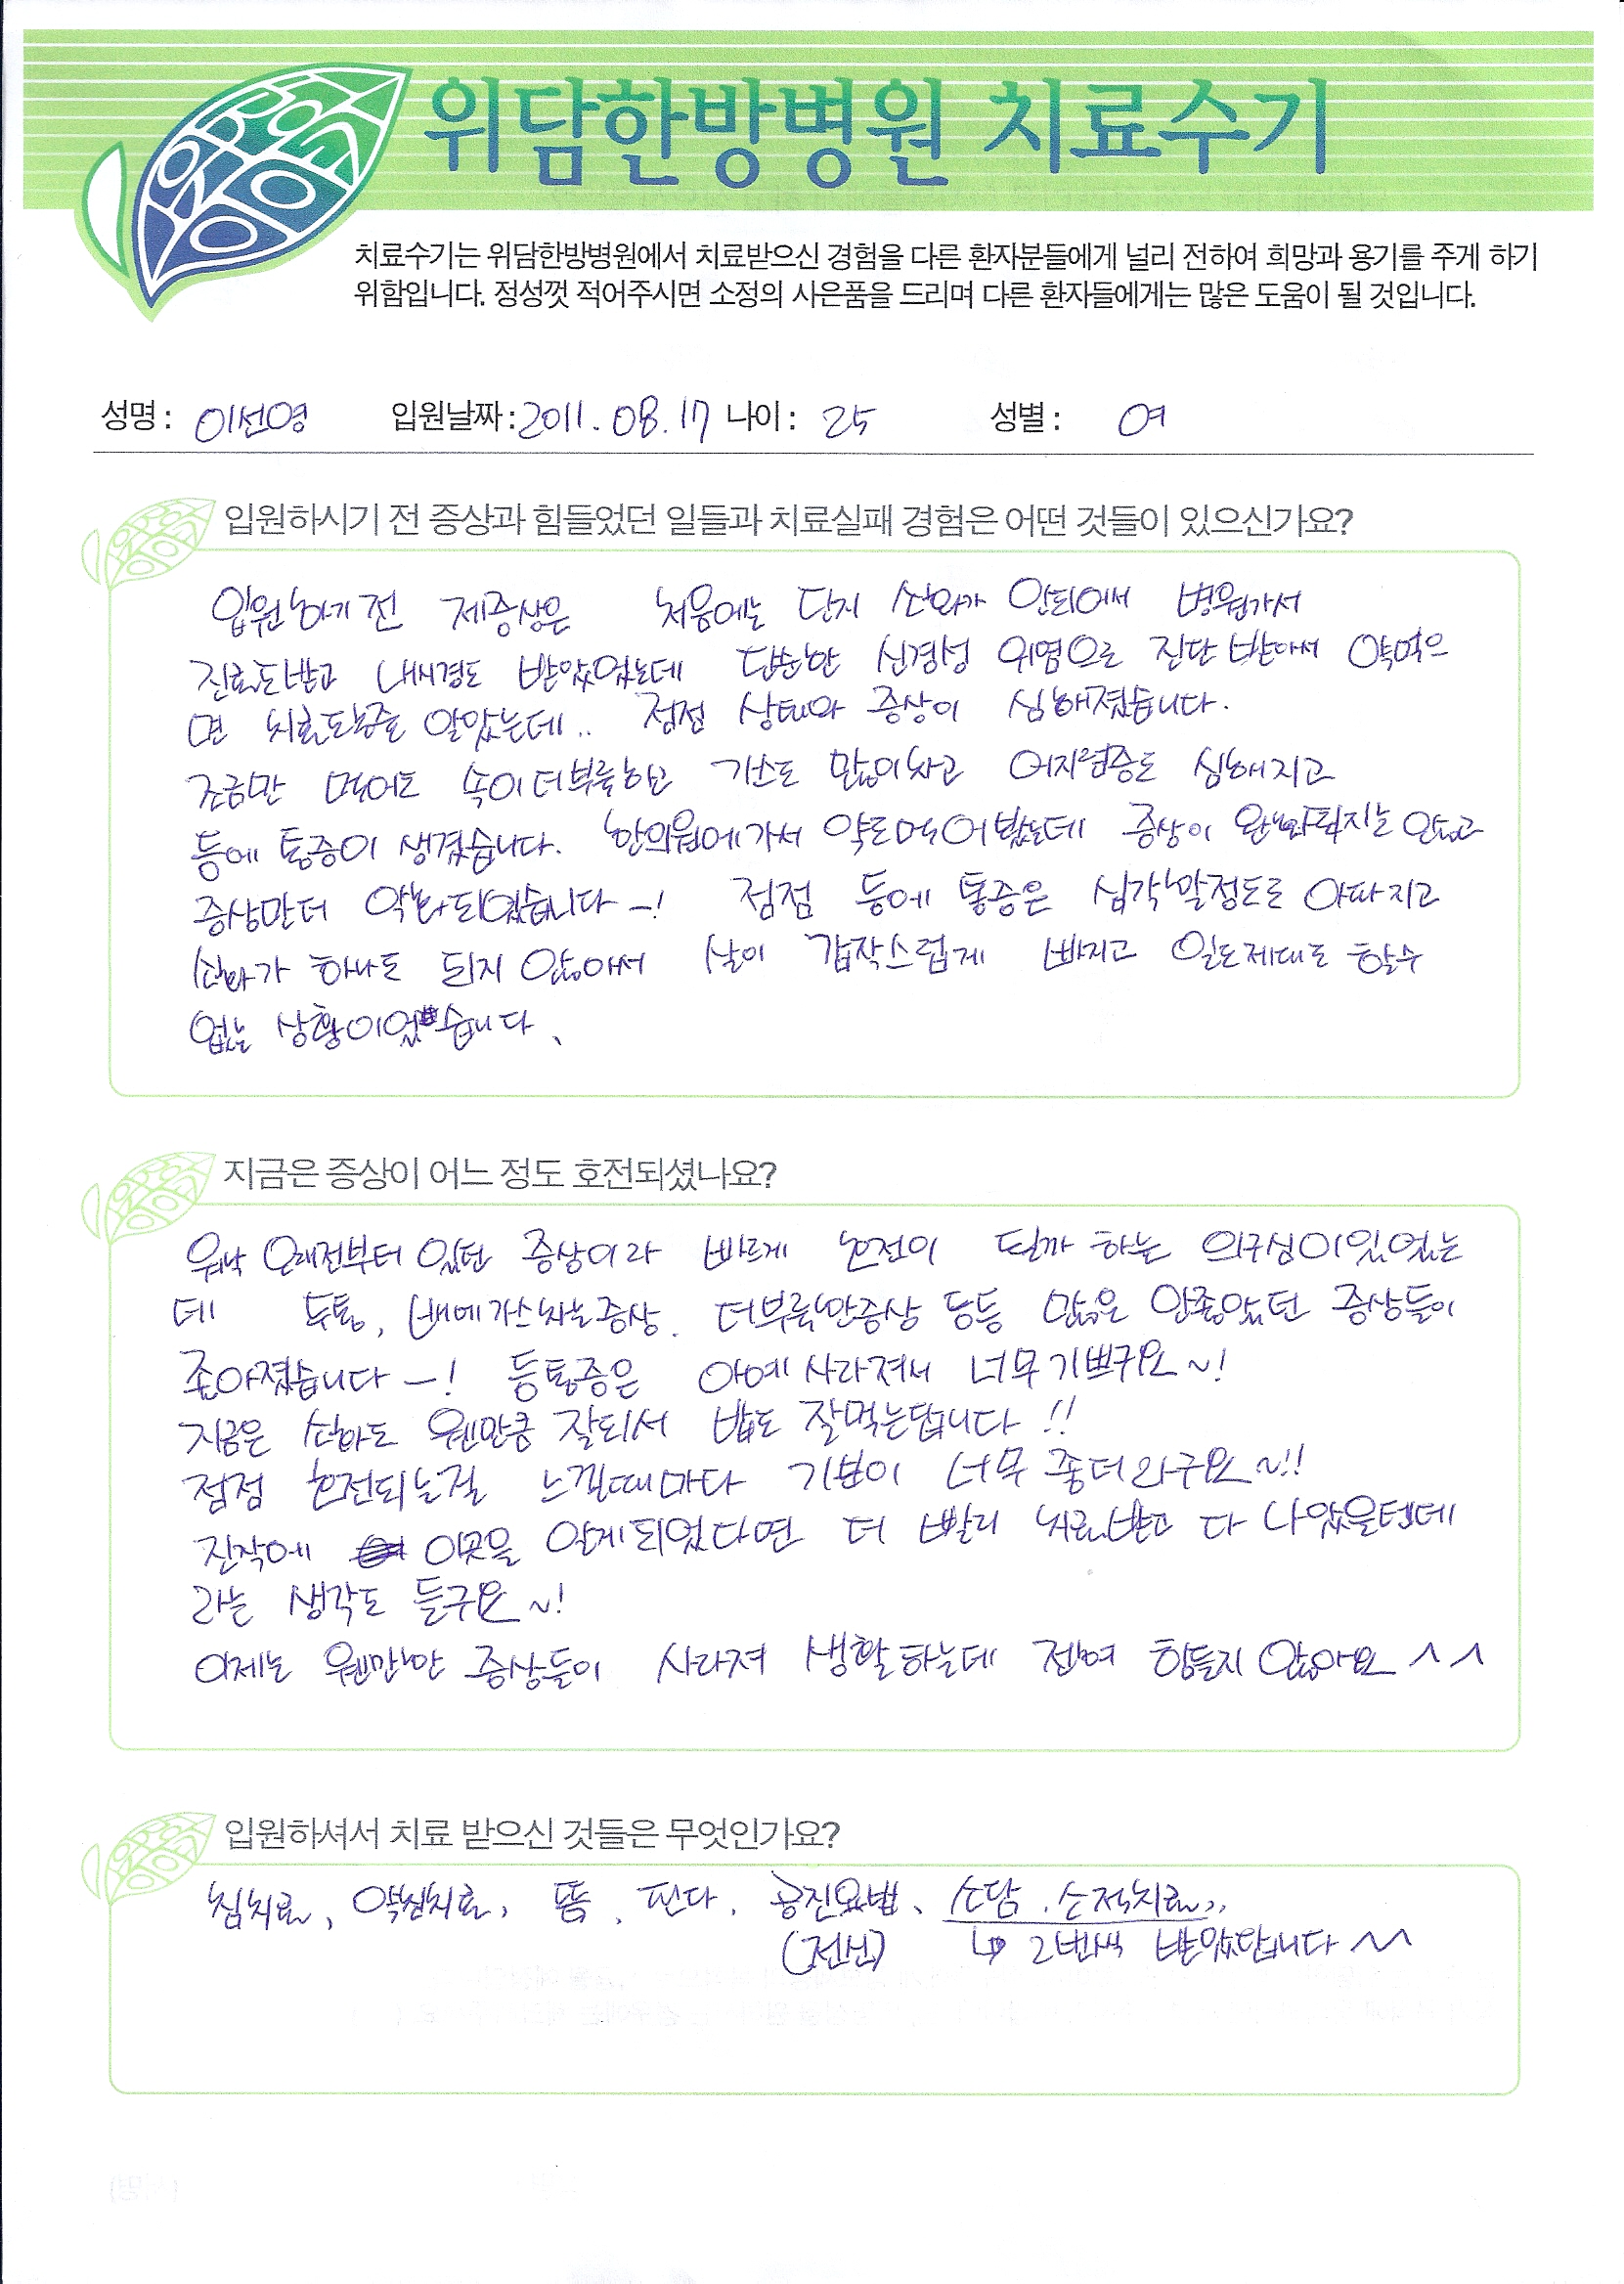 위담한방병원 치료수기
치료수기는 위담한방병원에서 치료받으신 경험을 다른 환자분들에게 널리 전하여 희망과 용기를 주게 하기
위함입니다. 정성껏 적어주시면 소정의 사은품을 드리며 다른 환자들에게는 많은 도움이 될 것입니다.
성명 : 이선영 입원날짜 : 2011. 08. 17 나이 : 25 성별 : 여
입원하시기 전 증상과 힘들었던 일들과 치료실패 경험은 어떤 것들이 있으신가요?
입원하기 전 제증상은 처음에는 단지 소화가 안되어서 병원가서
진료도받고 내시경도 받았었는데 단순한 신경성 위염으로 진단 받아서 약먹으
면 치료될줄 알았는데.. 점점 상태와 증상이 심해졌습니다.
조금만 먹어도 속이더부룩하고 가스도 많이차고 어지럼증도 심해지고
등에 통증이 생겼습니다. 한의원에가서 약도먹어봤는데 증상이 완화되지는 않고
증상만더 악화되었습니다-! 점점 등에 통증은 심각할정도로 아파지고
소화가 하나도 되지 않아서 살이 갑작스럽게 빠지고 일도제대로 할수
없는 상황이었습니다.
지금은 증상이 어느 정도 호전되셨나요?
워낙 오래전부터 있던 증상이라 빠르게 호전이 될까 하는 의구심이있었는
데 두통, 배에가스차는증상. 더부룩한증상 등등 많은 안좋았던 증상들이
좋아졌습니다-! 등통증은 아예사라져서 너무기쁘구요~!
지금은 소화도 웬만큼 잘되서 밥도 잘먹는답니다!!
점점 호전되는걸 느낄때마다 기분이 너무 좋더라구요~!!
진작에 이곳을 알게되었다면 더 빨리 치료받고 다 나았을텐데
라는 생각도 들구요~!
이제는 웬만한 증상들이 사라져 생활하는데 전혀 힘들지 않아요^^
입원하셔서 치료 받으신 것들은 무엇인가요?
침치료, 약침치료, 뜸, 핀다, 공진요법, 소담, 소적치료,,
(전신) ↳ 2번씩 받았답니다^^